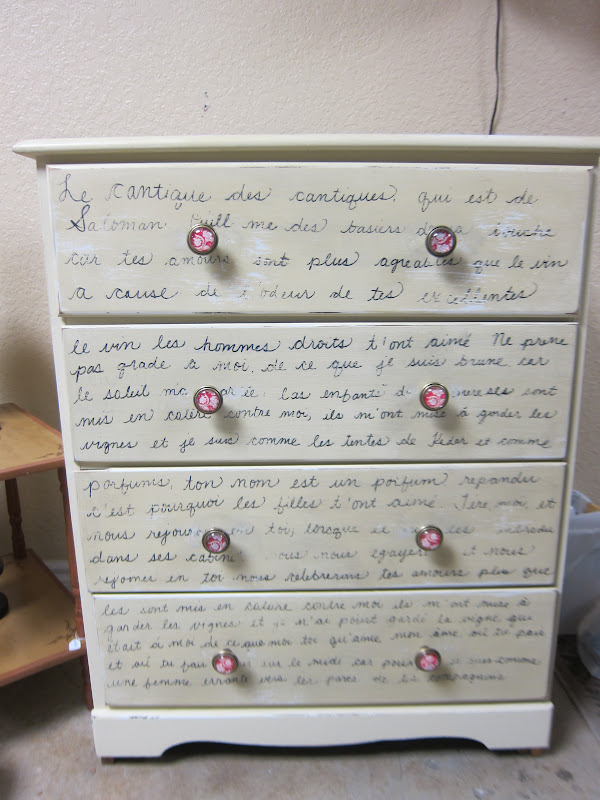 Le Cantique des cantiques, qui est de
Saloman me des basiers bouche
car tes amours sont plus agreables que le vin
a cause de l'odeur de tes excellentes
le vin les hommes droits t'ont aimé Ne prene
pas grade a moi, de ce que je suis brune car
le soleil ma Las enfants sont
mis en calere contre moi, ils m'ont mise à garder les
vignes et je suis comme les tentes de Kédar et comme
parfums, ton nom est un poifum repandu
c'est pourquoi les filles t'ont aimé Tire, moi, et
nous en toi, lorsque les introdu
dans ses nous et nous
rejomer en toi nous célébrerens tes amours plus que
les sont mis en calere contre moi ils m'ont mise à
garder les vignes et je n'ai point gardé la vigne que
était à moi de ce que moi toi qu'aime mon âme où tu pais
et où tu sur le midi car je sais comme
une femme errante vers les parcs de tes compagnins